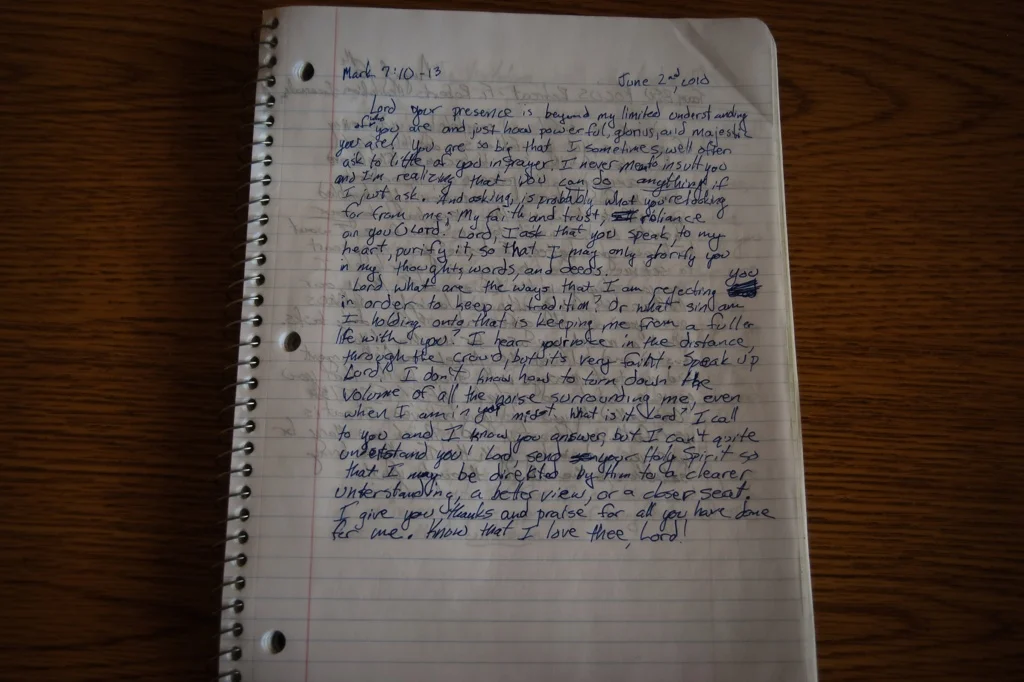 Mark 7:10-13 June 2nd, 2010
Lord your presence is beyound my limited understanding
of who you are and just how powerful, glorius, and majestic
you are! You are so big that I sometimes, well often
ask to little of you in prayer. I never mean to insult you
and I'm realizing that YOU can do anything if
I just ask. And asking, is probably what you're looking
for from me; My faith and trust, reliance
on you O Lord. Lord, I ask that you speak, to my
heart, purify it, so that I may only glorify you
in my thoughts, words, and deeds.
Lord what are the ways that I am rejecting you
in order to keep a tradition? Or what sin am
I holding onto that is keeping me from a fuller
life with you? I hear your voice in the distance,
through the crowd, but it's very faint. Speak up
Lord! I don't know how to turn down the
volume of all the noise surrounding me, even
when I am in your midst. What is it Lord? I call
to you and I know you answer, but I can't quite
understand you! Lord, send your Holy Spirit so
that I may be directed by Him to a clearer
understanding, a better view, or a closer seat.
I give you thanks and praise for all you have done
for me. Know that I love thee, Lord!